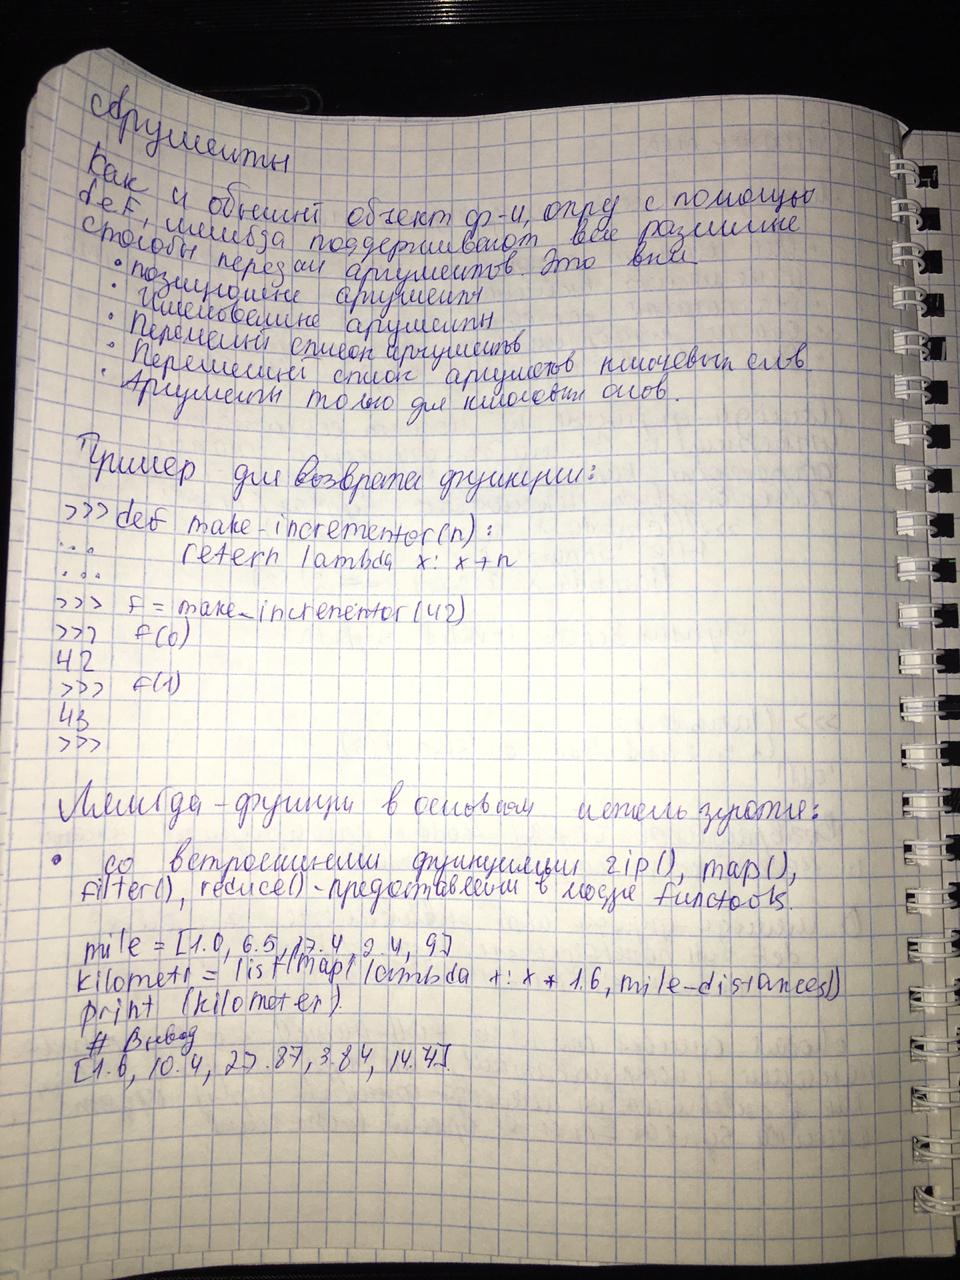 Аргументы
Как и обычный объект ф-и, опред с помощью
def, лямбда поддерживают все различные
способы передачи аргументов. Это вкл
• позиционные аргументы
• Именованные аргументы
• Переменный список аргументов
• Переменный список аргументов ключевых слов
• Аргументы только для ключевых слов.
Пример для возврата функции:
>>> def make-incrementor(n):
... retern lambda x: x+n
...
>>> f = make_incrementor(42)
>>> f(0)
42
>>> f(1)
43
>>>
Лямбда-функции в основном используются:
• со встроенными функциями zip(), map(),
filter(), reduce() - предоставлены в модуле functools.
mile = [1.0, 6.5, 17.4, 2.4, 9]
kilometr = list(map(lambda x: x * 1.6, mile-distances))
print (kilometer).
# Вывод
[1.6, 10.4, 27.87, 3.84, 14.4].